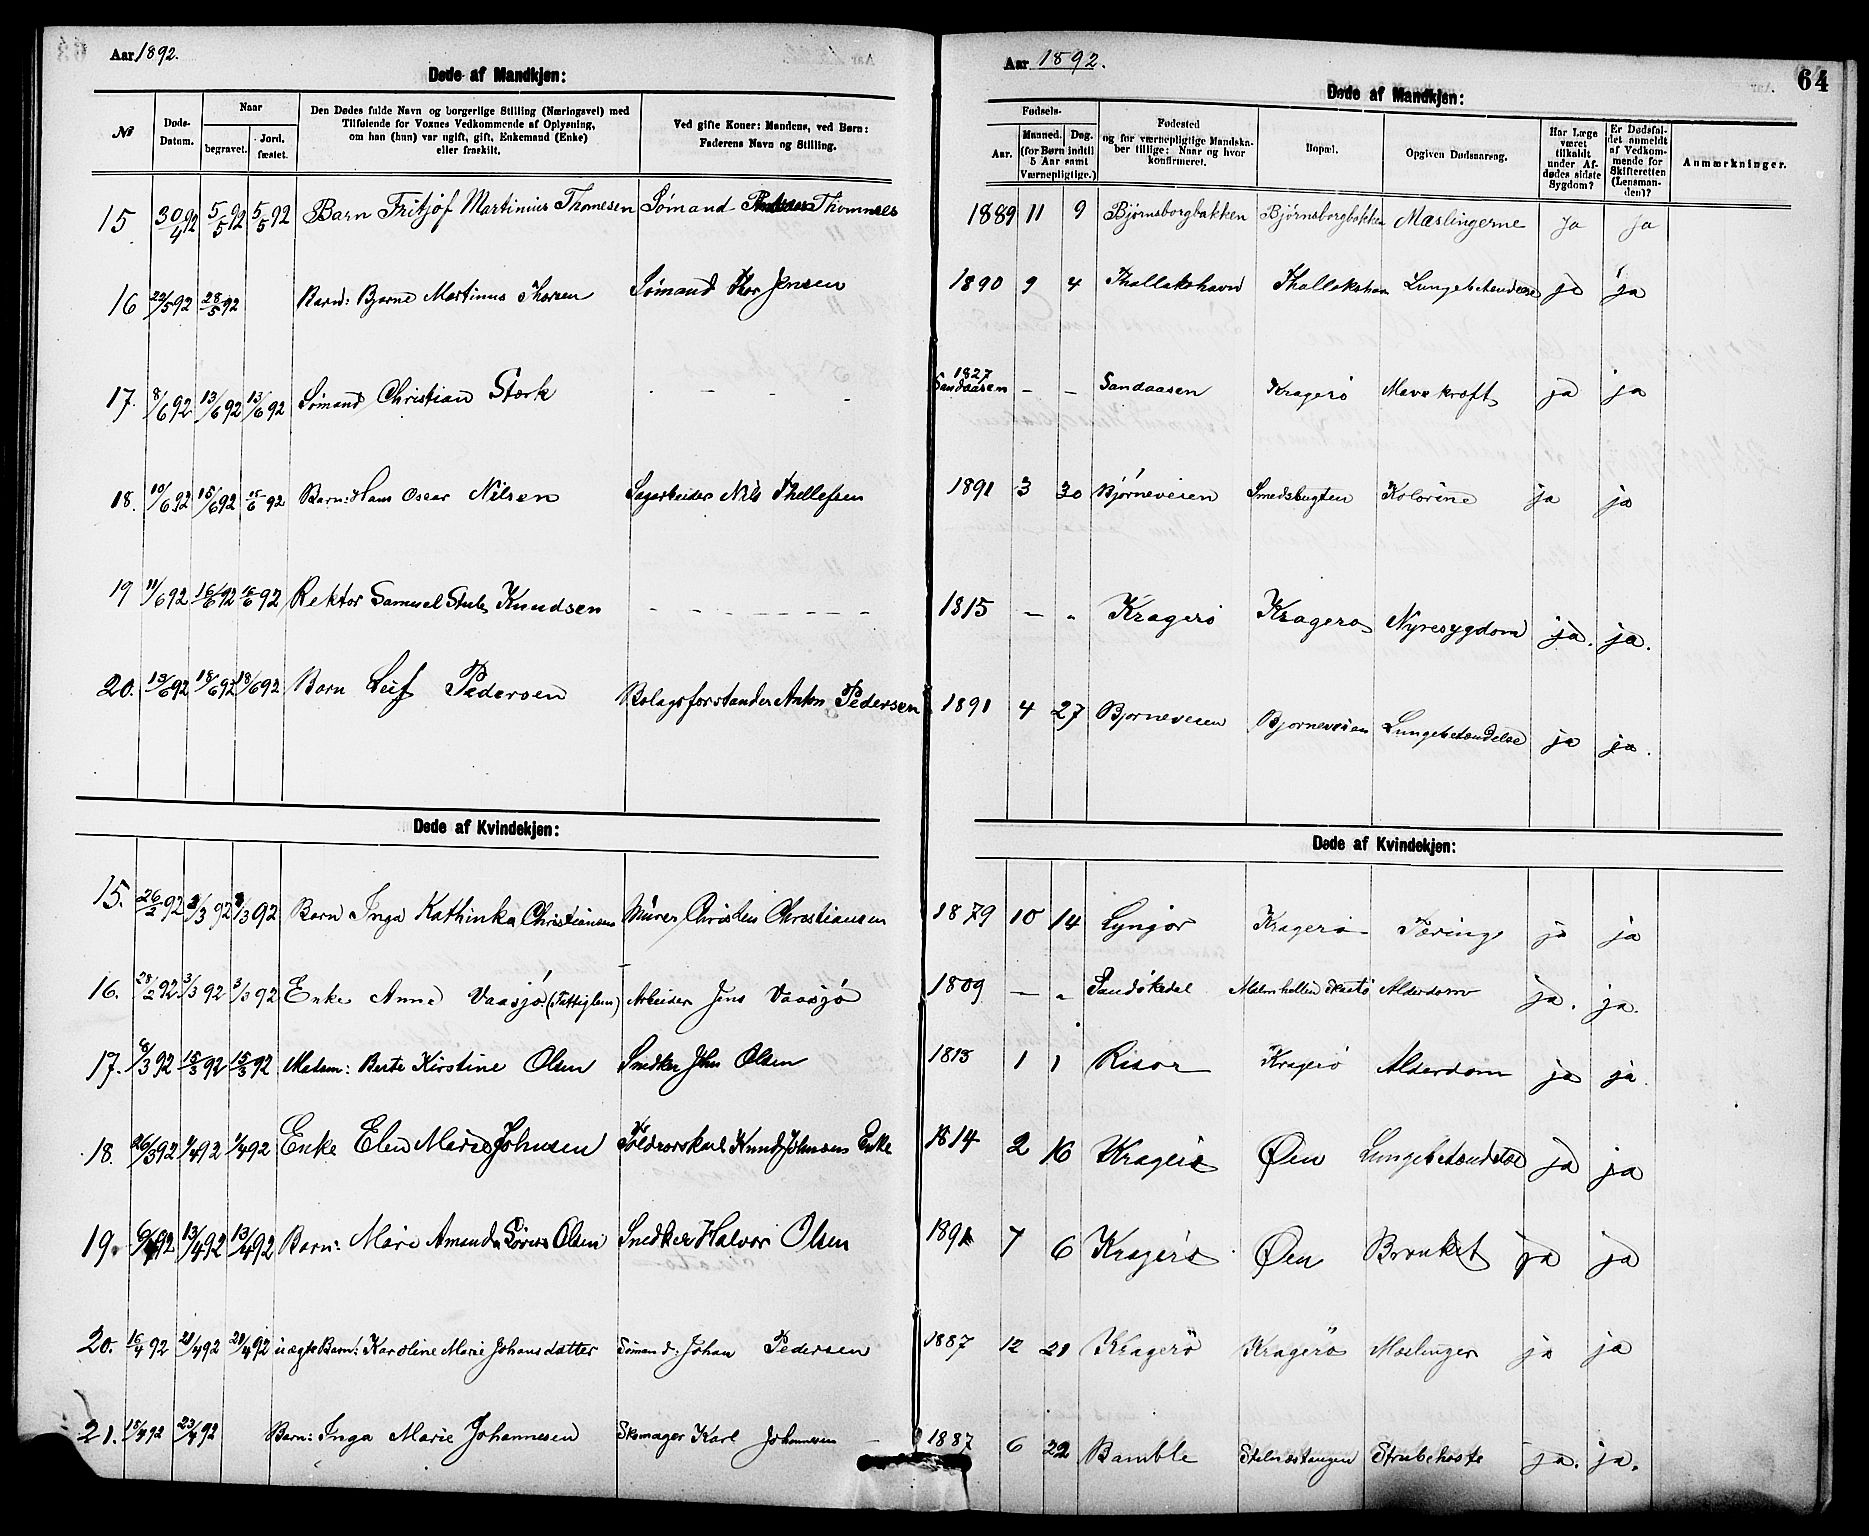 Aar 1892.
Døde af Mandkjøn:
№
Døds-Datum.
Naar
begravet.
Jord. fæstet.
Den Dødes fulde Navn og borgerlige Stilling (Næringsvei) med
Tilføiende for Voxnes Vedkommende af Oplysning,
om han (hun) var ugift, gift, Enkemand (Enke)
eller fraskilt.
Ved gifte Koner: Mandens, ved Børn:
Faderens Navn og Stilling.
15 30/4 92 5/5 92 5/5 92 Barn Fritjof Martinius Thomesen Sømand Thommes
16 22/5 92 28/5 92 Barn: Bjarne Martinus Thorsen Sømand Thor Jensen
17. 8/6 92 13/6 92 13/6 92 Sømand Christian Stærk - - - -
18. 10/6 92 15/6 92 15/6 92 Barn: Hans Oscar Nilsen Sagarbeider Nils Thellefsen
19 11/6 92 16/6 92 16/6 92 Rektor Samuel Stub Knudsen - - - - - - - -
20. 13/6 92 18/6 92 18/6 92 Barn Leif Pedersen Bolagsforstander Anton Pedersen
Døde af Kvindekjøn:
15. 26/2 92 3/3 92 3/3 92 Barn Inga Kathinka Christiansen Murer Christen Christiansen
16. 28/2 92 3/3 92 3/3 92 Enke Anne Vaasjø (Fattiglem) Arbeider Jens Vaasjø
17. 8/3 92 15/3 92 15/3 92 Madam: Berte Kirstine Olsen Snedker John Olsen
18. 26/3 92 1/4 92 1/4 92 Enke Elen Marie Johnsen Toldrorskarl Knud Johnsens Enke
19. 6/4 92 13/4 92 13/4 92 Barn: Marie Amanda Sørine Olsen Snedker Halvor Olsen
20. 16/4 92 21/4 92 21/4 92 uægte Barn: Karoline Marie Johansdatter Sømand: Johan Pedersen
21. 18/4 92 23/4 92 Barn: Inga Marie Johannesen Skomager Karl Johannesen
Aar 1892.
64
Døde af Mandkjøn:
Fødsels-
Aar.
Maaned. Dag.
(for Børn indtil
5 Aar samt
Værnepligtige.)
Fødested
og for værnepligtige Mandska-
ber tillige: Naar og hvor
konfirmeret.
Bopæl.
Opgiven Dødsaarsag.
Har Læge
været
tilkaldt
under Af-
dødes sidste
Sygdom?
Er Dødsfal-
det anmeldt
af Vedkom-
mende for
Skifteretten
(Lensman-
den)?
Anmærkninger.
1889 11 9 Bjørnsborgbakken Bjørnsborgbakken Mæslingerne ja ja
1890 9 4 Thallakshavn Thallakshavn Lungebetændelse ja ja
1827
Sandaasen - - Sandaasen Kragerø Mavekræft ja ja
1891 3 30 Bjørneveien Smedsbugten Kolorine ja ja
1815 - " Kragerø Kragerø Nyresygdom ja. ja.
1891 4 27 Bjørneveien Bjørneveien Lungebetændelse ja ja.
Døde af Kvindekjøn:
1879 10 14 Lyngør Kragerø Tæring ja ja
1809 - " Sandøkedal Malmhellen Skaatø Alderdom ja. ja.
1813 1 1 Risør Kragerø Alderdom ja ja.
1814 2 16 Kragerø Øen Lungebetændelse ja ja
1891 7 6 Kragerø Øen Bronket ja ja
1887 12 21 Kragerø Kragerø Mæslinger ja ja
1887 6 22 Bamble Stilnæstangen Strubehoste ja. ja.